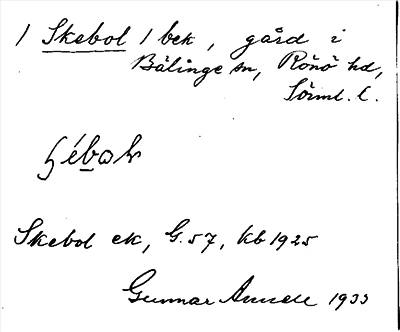 / Skebol / bek, gård i
Bälinge sn, Rönö hd,
Sörml. l.
Skebol ek, G. 57, kb 1925
Gunnar 1933